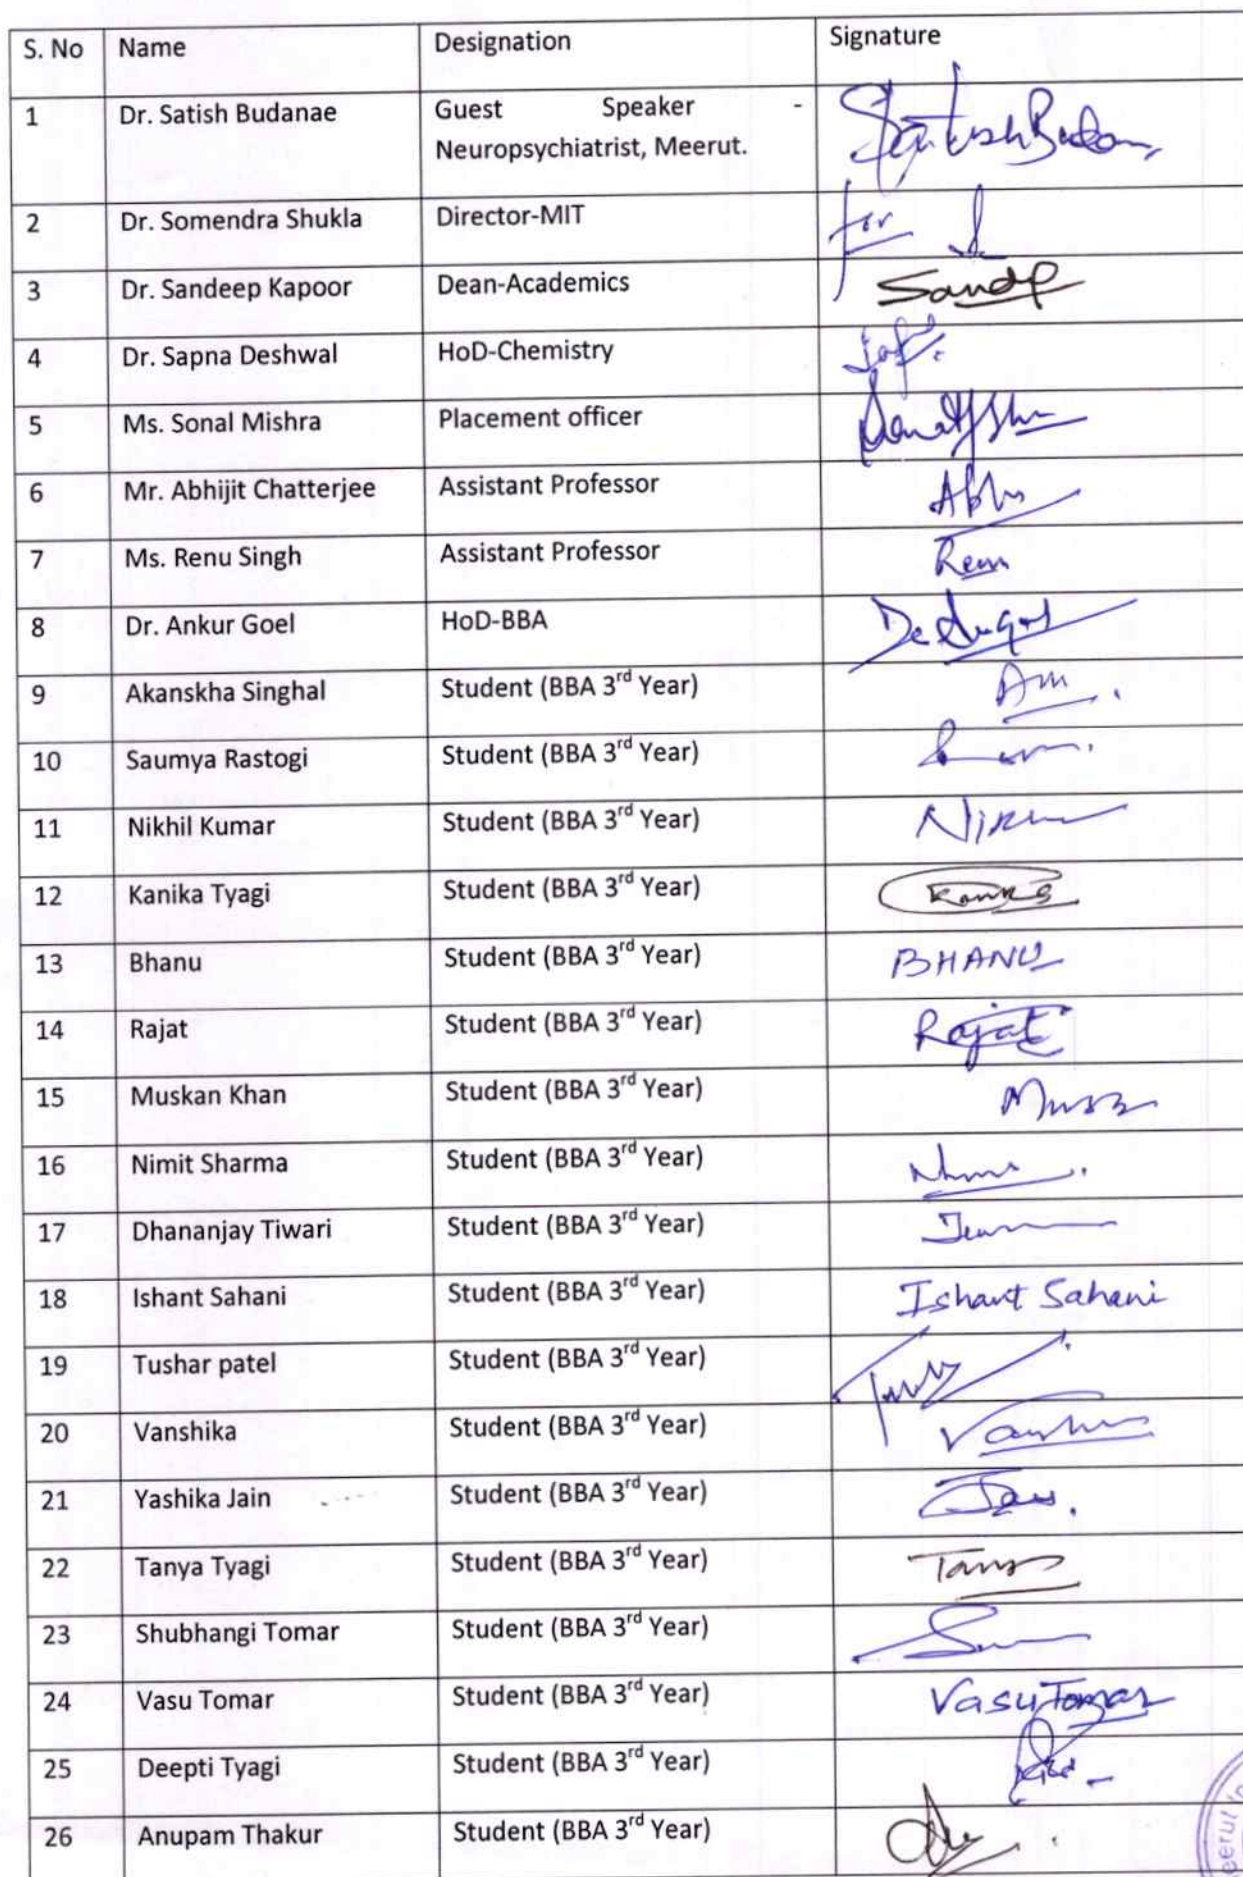 S. No Name Designation Signature
1 Dr. Satish Budanae Guest Speaker -
Neuropsychiatrist, Meerut.
2 Dr. Somendra Shukla Director-MIT for
3 Dr. Sandeep Kapoor Dean-Academics
4 Dr. Sapna Deshwal HoD-Chemistry
5 Ms. Sonal Mishra Placement officer
6 Mr. Abhijit Chatterjee Assistant Professor
7 Ms. Renu Singh Assistant Professor
8 Dr. Ankur Goel HoD-BBA
9 Akanskha Singhal Student (BBA 3rd Year)
10 Saumya Rastogi Student (BBA 3rd Year)
11 Nikhil Kumar Student (BBA 3rd Year)
12 Kanika Tyagi Student (BBA 3rd Year)
13 Bhanu Student (BBA 3rd Year) BHANU
14 Rajat Student (BBA 3rd Year) Rajat
15 Muskan Khan Student (BBA 3rd Year)
16 Nimit Sharma Student (BBA 3rd Year)
17 Dhananjay Tiwari Student (BBA 3rd Year)
18 Ishant Sahani Student (BBA 3rd Year) Ishant Sahani
19 Tushar patel Student (BBA 3rd Year)
20 Vanshika Student (BBA 3rd Year)
21 Yashika Jain Student (BBA 3rd Year)
22 Tanya Tyagi Student (BBA 3rd Year)
23 Shubhangi Tomar Student (BBA 3rd Year)
24 Vasu Tomar Student (BBA 3rd Year) Vasu Tomar
25 Deepti Tyagi Student (BBA 3rd Year)
26 Anupam Thakur Student (BBA 3rd Year)